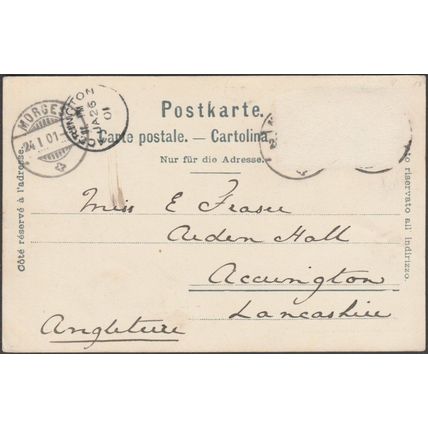 Postkarte.
Carte postale. — Cartolina
Nur für die Adresse.
MORGES
24.I.01
ACCRINGTON
JA 26
01
Côté réservé à l'adresse.
riservato all'indirizzo.
Miss E Fraser
Arden Hall
Accrington
Lancashire
Angleterre